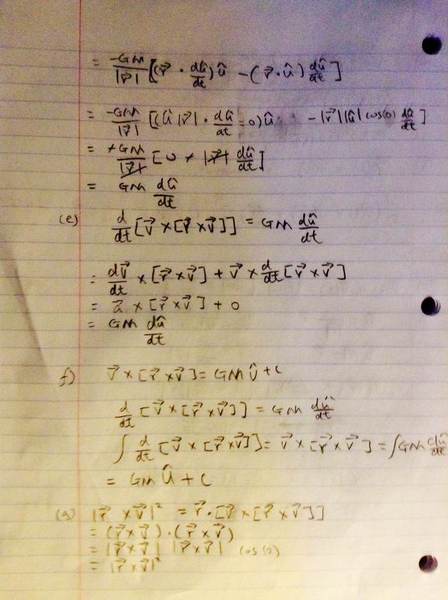 = -GM/|r⃗| [(r⃗ · dû/dt)û - (r⃗ · û) dû/dt]
= -GM/|r⃗| [(û|r⃗| · dû/dt = 0)û - |r⃗||û| cos(0) dû/dt]
= +GM/|r⃗| [0 + |r⃗| dû/dt]
= GM dû/dt
(e) d/dt [v⃗ × [r⃗ × v⃗]] = GM dû/dt
= dv⃗/dt × [r⃗ × v⃗] + v⃗ × d/dt [r⃗ × v⃗]
= a⃗ × [r⃗ × v⃗] + 0
= GM dû/dt
f) v⃗ × [r⃗ × v⃗] = GM û + c
d/dt [v⃗ × [r⃗ × v⃗]] = GM dû/dt
∫ d/dt [v⃗ × [r⃗ × v⃗]] = v⃗ × [r⃗ × v⃗] = ∫ GM dû/dt
= GM û + c
(g) |r⃗ × v⃗|² = r⃗ · [v⃗ × [r⃗ × v⃗]]
= (r⃗ × v⃗) · (r⃗ × v⃗)
= |r⃗ × v⃗| |r⃗ × v⃗| cos(0)
= |r⃗ × v⃗|²